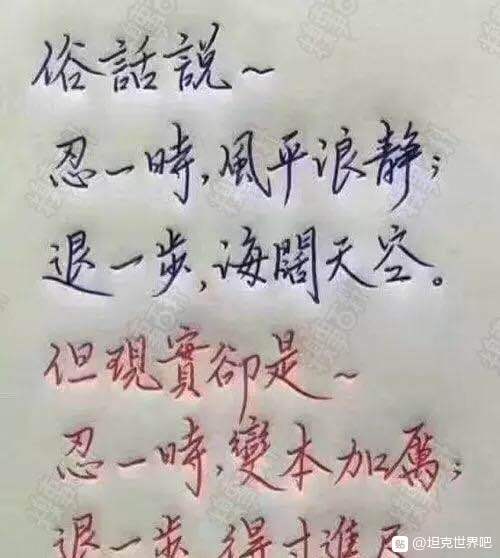 俗話說~
忍一時,風平浪靜;
退一步,海闊天空。
但現實卻是~
忍一時,變本加厲;
退一步,得寸進尺
貼 @坦克世界吧